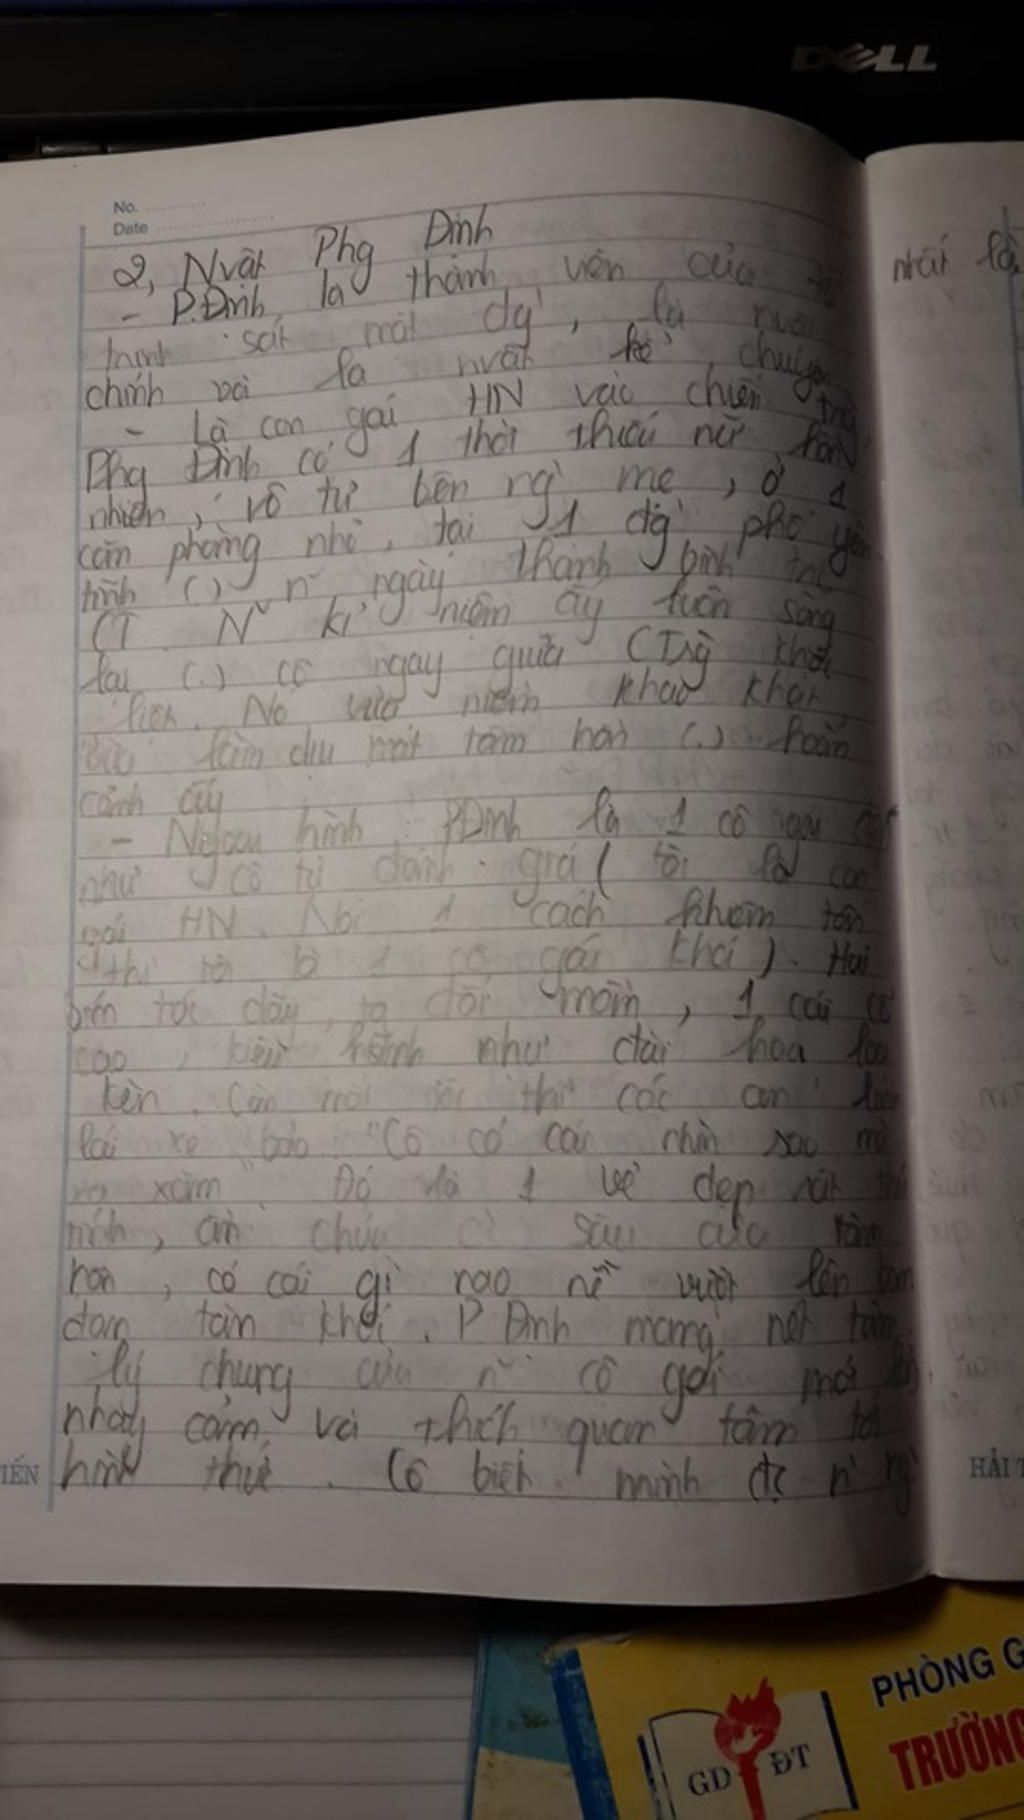 DELL
No.
Date
2, Nvật Phg Định
- P.Định là thành viên của tổ
trinh sát mặt đg', là nvật
chính và là nvật kể chuyện
- Là con gái HN vào chiến trg
Phg Định có 1 thời thiếu nữ hồn
nhiên, vô tư bên ng' mẹ, ở 1
căn phòng nhỏ, tại 1 đg' phố yên
tĩnh (.) n~ ngày thanh bình trc
CT. N~ kỉ niệm ấy luôn sống
lại (.) cô ngay giữa CTrg khốc
liệt. Nó vừa niềm khao khát,
vừa làm dịu mát tâm hồn (.) hoàn
cảnh ấy
- Ngoại hình: PĐịnh là 1 cô gái đẹp
như cô tự đánh giá (tôi là con
gái HN. Nói 1 cách khiêm tốn
thì tôi là 1 cô gái khá). Hai
bím tóc dày, tg đối mềm, 1 cái cổ
cao, kiêu hãnh như đài hoa loa
kèn. Còn mắt tôi thì các anh lái
lái xe bảo "Cô có cái nhìn sao mà
xa xăm" Đó là 1 vẻ đẹp rất
mình, ẩn chứa sâu tâm
hồn, có cái gì nao vượt lên bom
đạn tàn khốc. P Định mang nét tâm
lý chung của n~ cô gái mới lớn,
nhạy cảm và thích quan tâm tới
hình thức. Cô biết mình đc n` ng'
nhất là
TIẾN
HẢI T
PHÒNG G
TRƯỜNG
GD ĐT